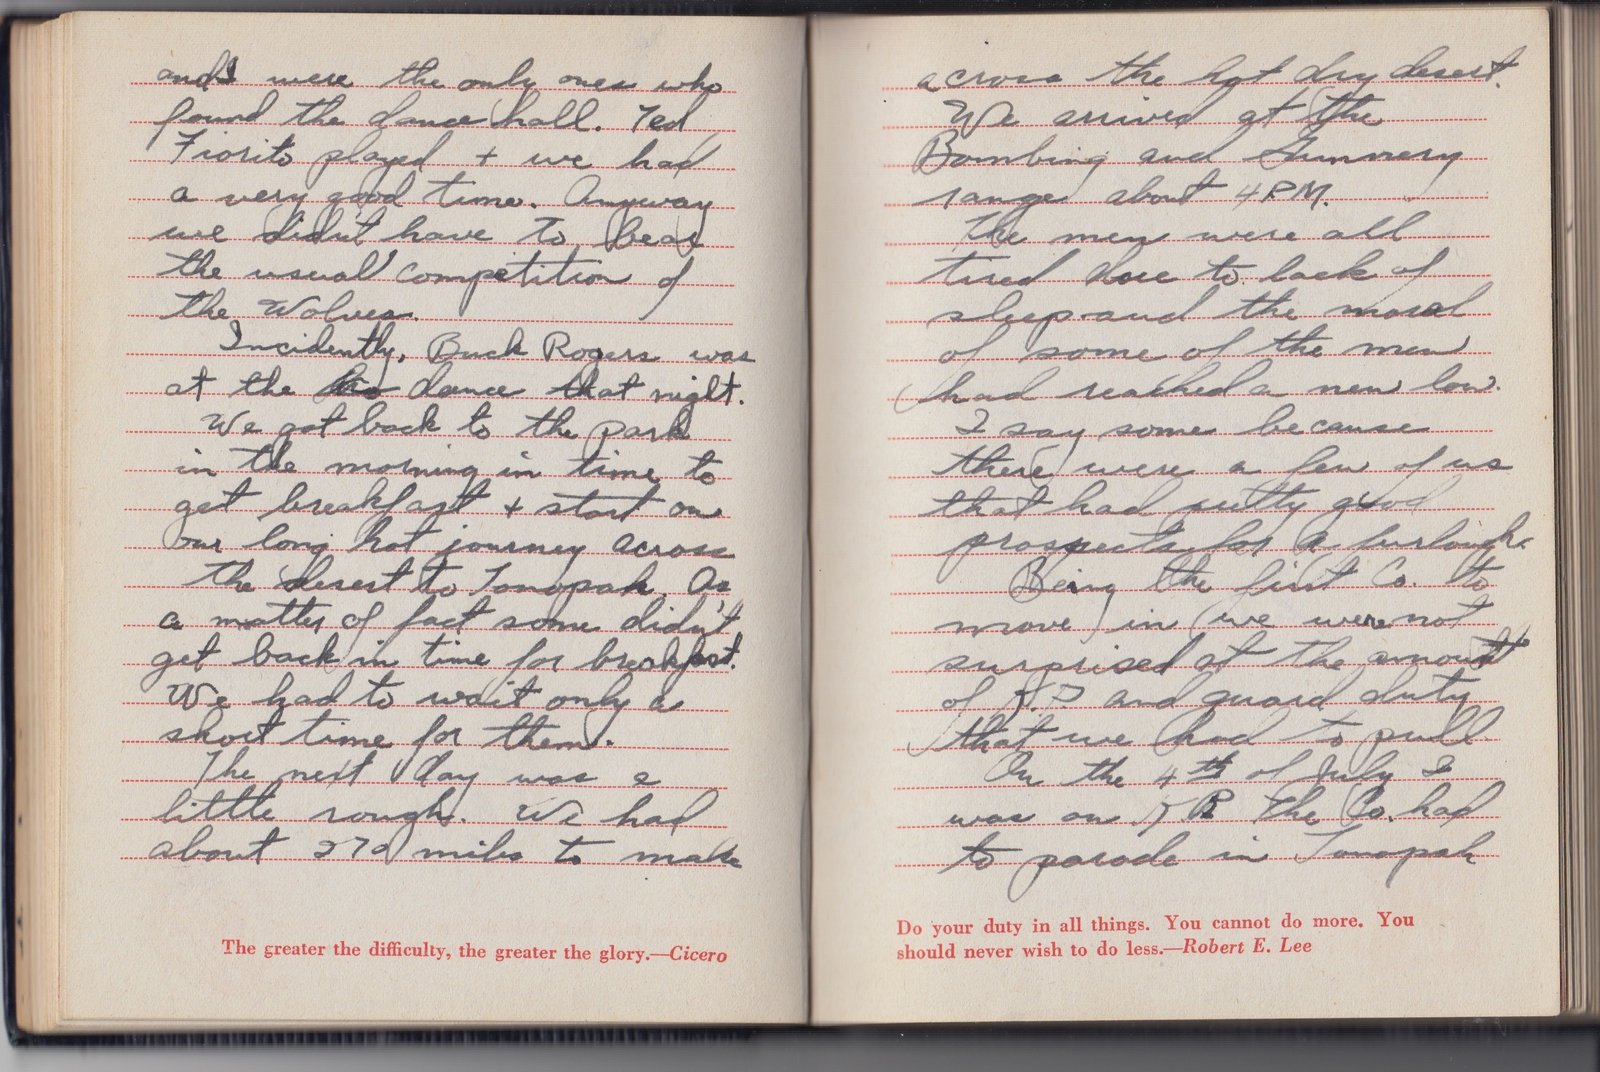 and I were the only ones who
found the dance hall. Ted
Fiorito played + we had
a very good time. Anyway
we didn't have to bear
the usual competition of
the Wolves.
Incidently, Buck Rogers was
at the dance that night.
We got back to the park
in the morning in time to
get breakfast + start on
our long hot journey across
the desert to Tonopah. As
a matter of fact some didn't
get back in time for breakfast.
We had to wait only a
short time for them.
The next day was a
little rough. We had
about 270 miles to make
The greater the difficulty, the greater the glory.—Cicero
across the hot dry desert.
We arrived at the
Bombing and Gunnery
range about 4 PM.
The men were all
tired due to lack of
sleep and the moral
of some of the men
had reached a new low.
I say some because
there were a few of us
that had pretty good
prospects for a furlough.
Being the first Co. to
move in we were not
surprised at the amount
of K.P and guard duty
that we had to pull
On the 4th of July I
was on K P. The Co. had
to parade in Tonopah
Do your duty in all things. You cannot do more. You
should never wish to do less.—Robert E. Lee